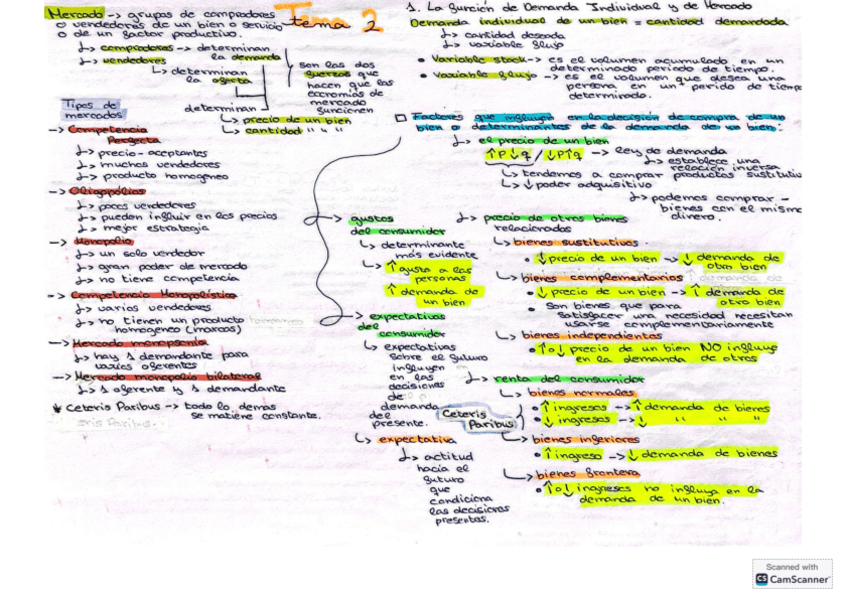 Tema 2
Mercado -> grupos de compradores
o vendedores de un bien o servicio
o de un sector productivo.
↳ compradores -> determinan
la demanda
↳ vendedores
↳ determinan
la oferta
son las dos
fuerzas que
hacen que las
economías de
mercado
funcionen
determinan
↳ precio de un bien
↳ cantidad " " "
Tipos de
mercados
-> Competencia
Perfecta
↳ precio-aceptantes
↳ muchos vendedores
↳ producto homogeneo
-> Oligopolios
↳ pocos vendedores
↳ pueden influir en los precios
↳ mejor estrategia
-> Monopolio
↳ un solo verdedor
↳ gran poder de mercado
↳ no tiene competencia
-> Competencia Monopolística
↳ varios vendedores
↳ no tienen un producto
homogeneo (marcas)
-> Mercado monopsonia
↳ hay 1 demandante para
varios oferentes
-> Mercado monopolio bilateral
↳ 1 oferente y 1 demandante
* Ceteris Paribus -> todo lo demas
se matiene constante.
1. La función de Demanda Individual y de Mercado
Demanda individual de un bien = cantidad demandada
↳ cantidad deseada
↳ variable flujo
• Variable stock -> es el volumen acumulado en un
determinado periodo de tiempo.
• Variable flujo -> es el volumen que desea una
persona en un perido de tiempo
determinado.
□ Factores que influyen en la decisión de compra de un
bien o determinantes de la demanda de un bien:
↳ el precio de un bien
↑P↓q / ↓P↑q -> ley de demanda
↳ establece una
relación inversa
↳ tendemos a comprar productos sustitutivo
↳ ↓ poder adquisitivo
↳ podemos comprar -
bienes con el mismo
dinero.
↳ precio de otros bienes
relacionados
↳ bienes sustitutivos.
• ↓ precio de un bien -> ↓ demanda de
otro bien
↳ bienes complementarios
• ↓ precio de un bien -> ↑ demanda de
otro bien
• Son bienes que para
satisfacer una necesidad necesitan
usarse complementariamente
↳ bienes independientes
• ↑o↓ precio de un bien NO influye
en la demanda de otros
↳ renta del consumidor
↳ bienes normales
• ↑ ingresos -> ↑ demanda de bienes
• ↓ ingresos -> ↓ " " "
Ceteris
Paribus
↳ bienes inferiores
• ↑ ingreso -> ↓ demanda de bienes
↳ bienes frontera
• ↑o↓ ingresos no influya en la
demanda de un bien.
-> gustos
del consumidor
↳ determinante
más evidente
↳ ↑ gusto a las
personas
↑ demanda de
un bien
-> expectativas
del
consumidor
↳ expectativas
sobre el futuro
influyen
en las
decisiones
de
demanda
del
presente.
↳ expectativa
↳ actitud
hacia el
futuro
que
condiciona
las decisiones
presentes.
Scanned with
CS CamScanner